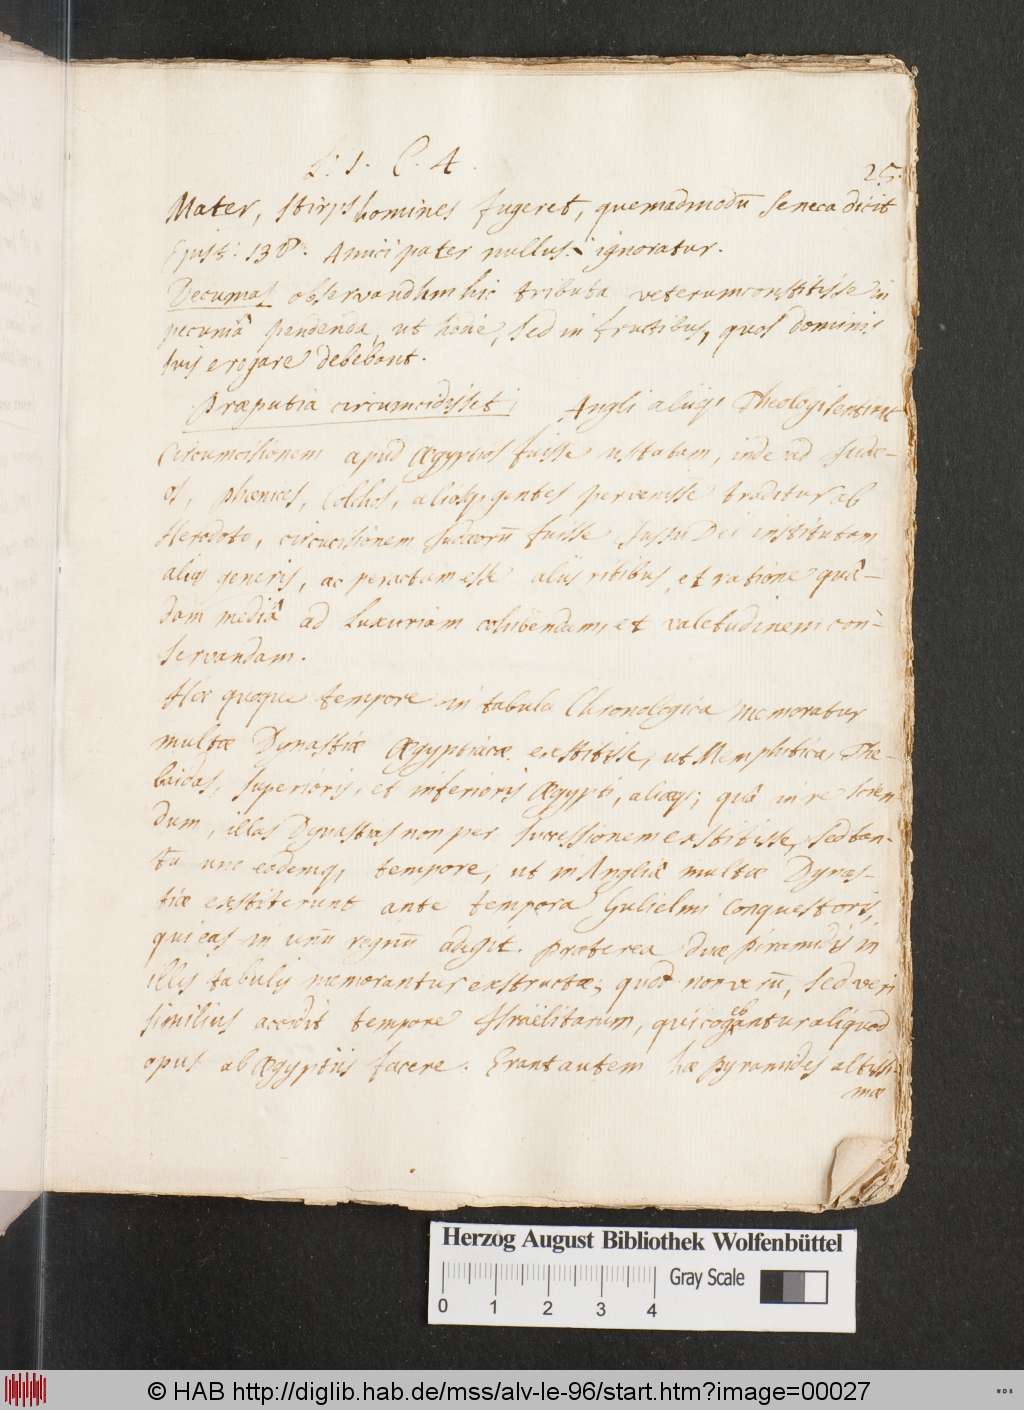 L. 1. C. 4.
25.
Mater, stirps homines fugeret, quemadmodū Seneca dicit
Epist: 138. Amici pater nullus. ignoratur.
Decumas observandum hic tributa veterum constitisse in
pecuniâ pendenda, ut hodie, sed in fructibus, quos dominis
suis erogare debebant.
Præputia circumcidisset; Angli aliiq; Theologi sentiunt
Circumcisionem apud Ægyptios fuisse usitatam, inde ad Judæ-
os, Phœnices, Colchos, aliasq; gentes pervenisse traditur ab
Herodoto, circūcisionem Judæorū fuisse jussu Dei institutam
aliq; generis, ac peractam esse aliis ritibus, et ratione quâ-
dam mediâ ad Luxuriam cohibendam, et valetudinem con-
servandam.
Hoc quoque tempore in tabula Chronologica memoratur
multæ Dynastiæ Ægyptiacæ exstitisse, ut Memphitica, The-
baidos, superioris, et inferioris Ægypti, aliæq; quâ in re scien-
dum, illas Dynastias non per successionem exstitisse, sed tan-
tū uno eodemq; tempore, ut in Angliâ multæ Dynas-
tiæ exstiterunt ante tempora Gulielmi Conquestoris,
qui eas in unū regnū adegit. Præterea duæ piramidis in
illis tabulis memorantur exstructæ; quod non verū, sed veri
similius accidit tempore Israëlitarum, qui cogebantur aliquod
opus ab Ægyptiis facere. Erant autem hæ pyramides altissi-
mæ
Herzog August Bibliothek Wolfenbüttel
Gray Scale
0 1 2 3 4
© HAB http://diglib.hab.de/mss/alv-le-96/start.htm?image=00027